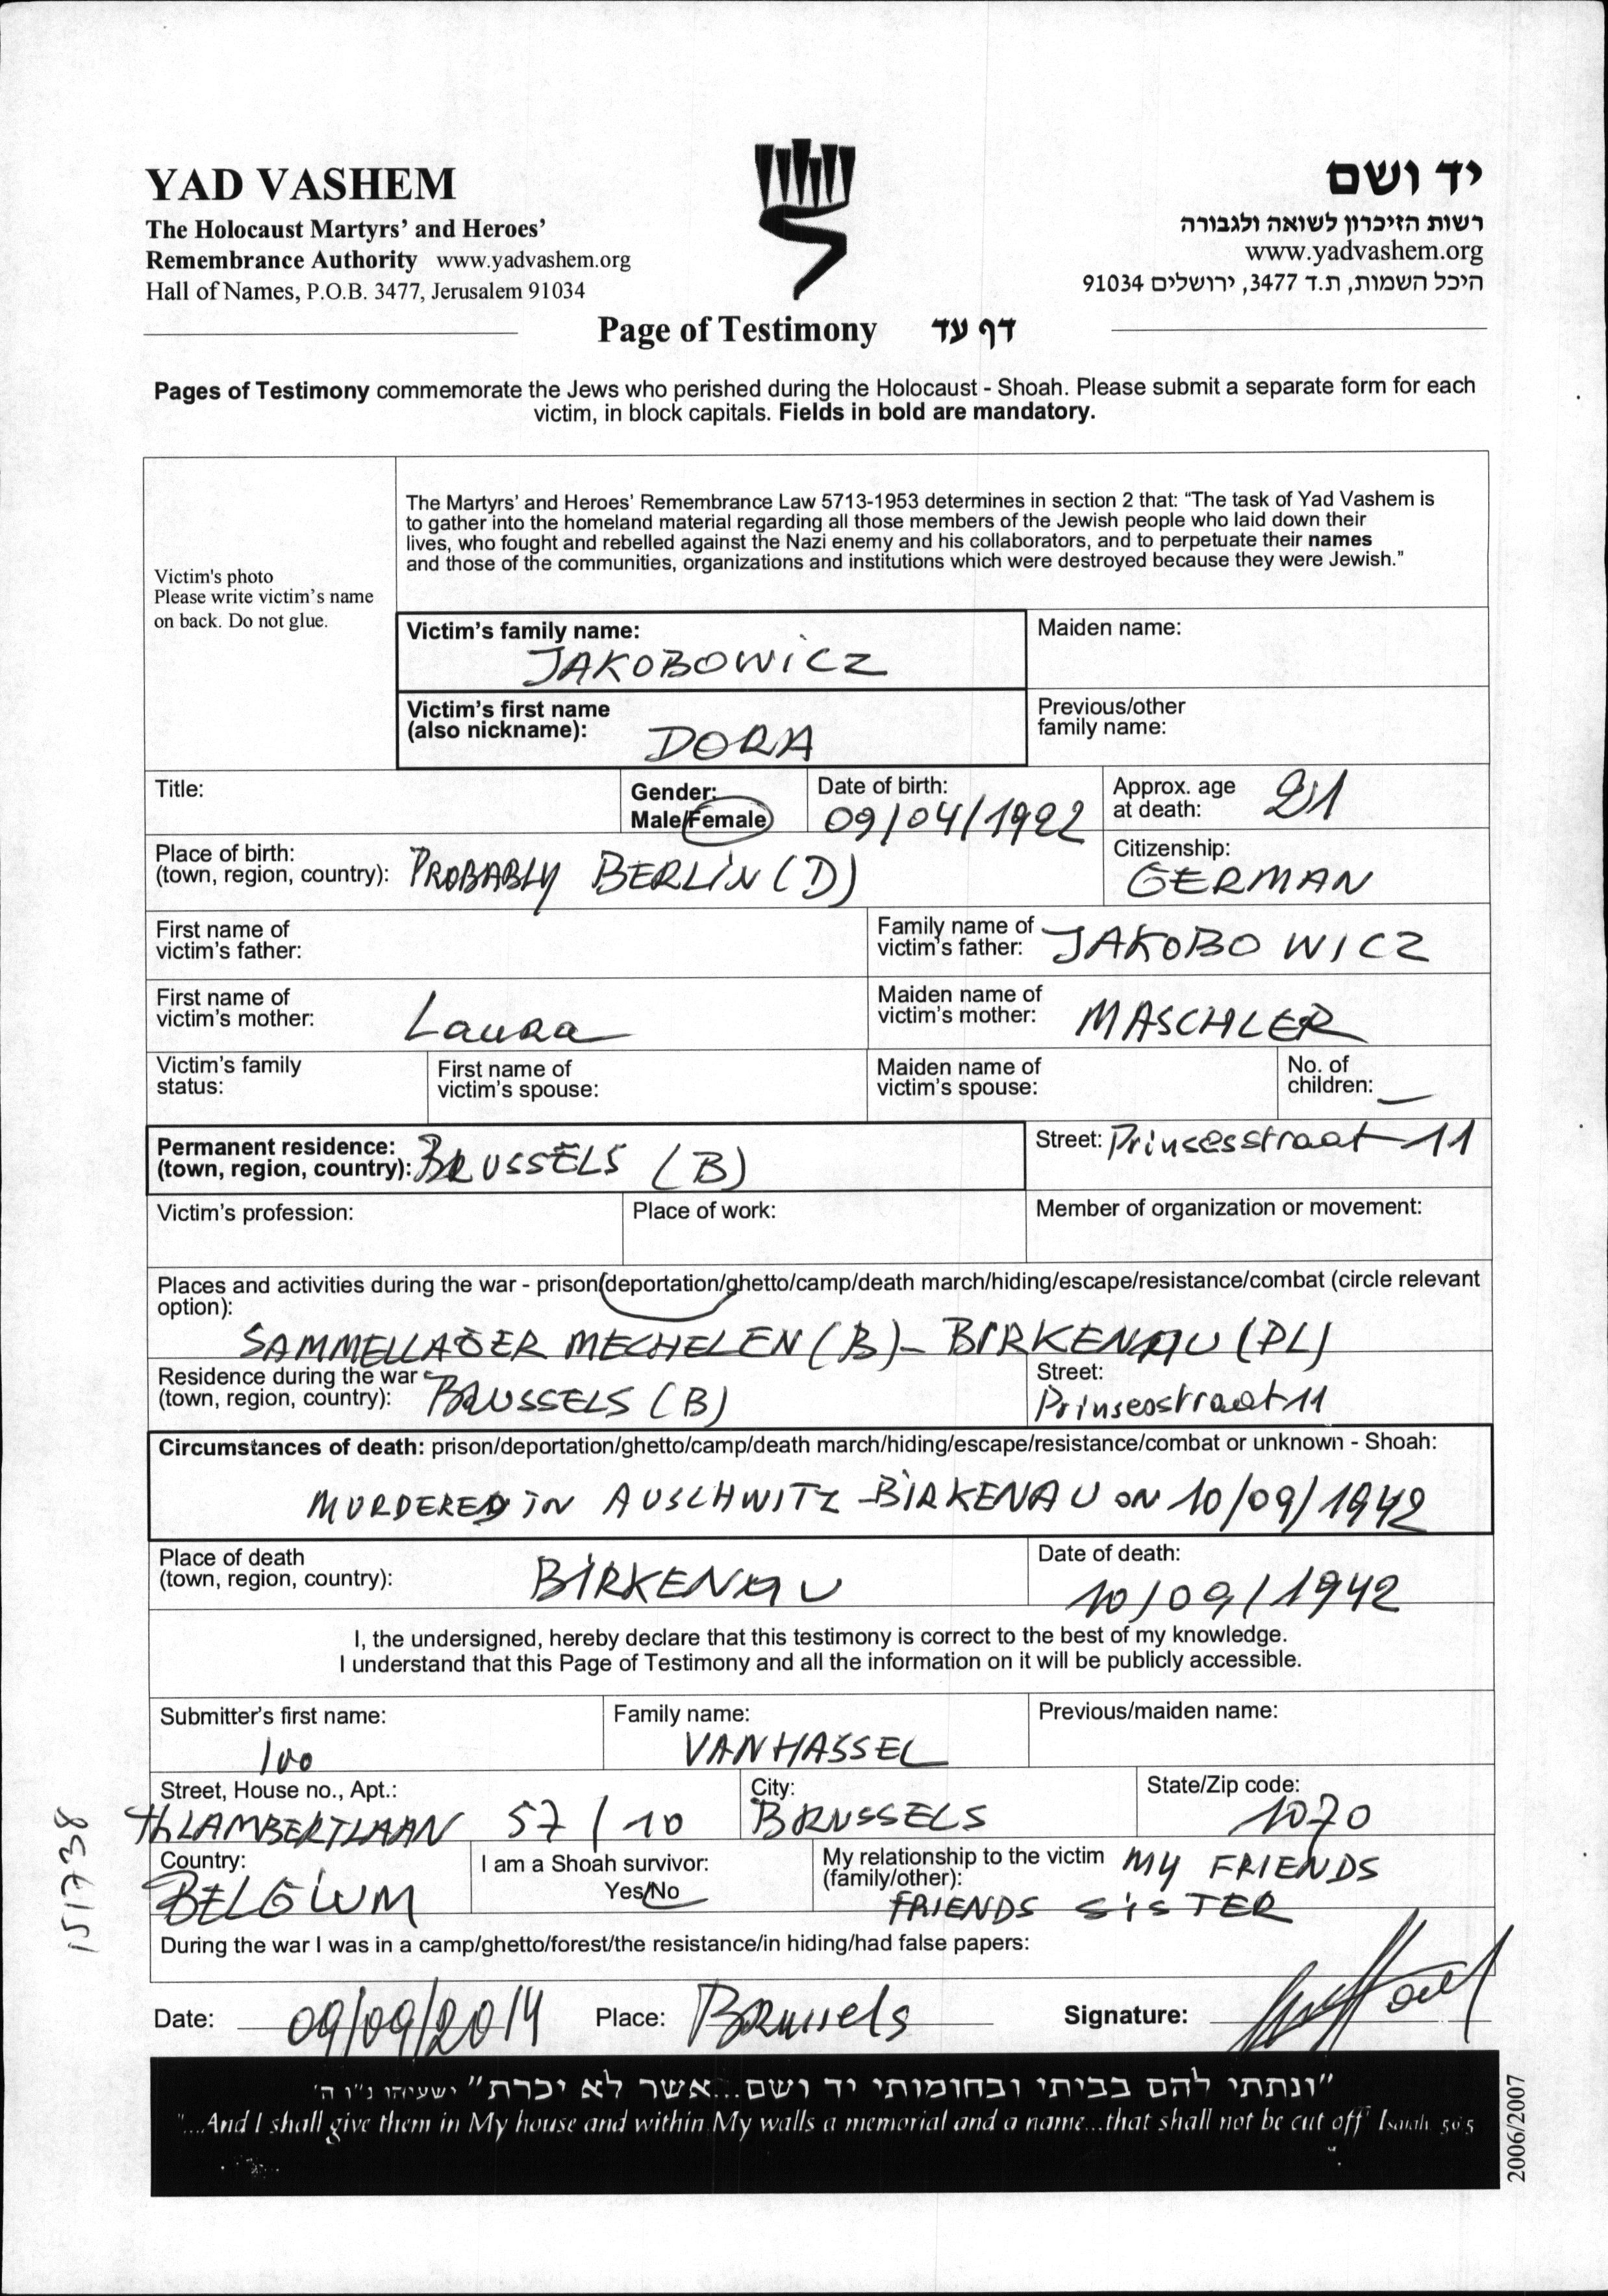 YAD VASHEM
The Holocaust Martyrs' and Heroes'
Remembrance Authority www.yadvashem.org
Hall of Names, P.O.B. 3477, Jerusalem 91034
יד ושם
רשות הזיכרון לשואה ולגבורה
www.yadvashem.org
היכל השמות, ת.ד 3477, ירושלים 91034
Page of Testimony דף עד
Pages of Testimony commemorate the Jews who perished during the Holocaust - Shoah. Please submit a separate form for each
victim, in block capitals. Fields in bold are mandatory.
Victim's photo
Please write victim's name
on back. Do not glue.
The Martyrs' and Heroes' Remembrance Law 5713-1953 determines in section 2 that: "The task of Yad Vashem is
to gather into the homeland material regarding all those members of the Jewish people who laid down their
lives, who fought and rebelled against the Nazi enemy and his collaborators, and to perpetuate their names
and those of the communities, organizations and institutions which were destroyed because they were Jewish."
Victim's family name:
JAKOBOWICZ
Maiden name:
Victim's first name
(also nickname): DORA
Previous/other
family name:
Title:
Gender:
Male/Female
Date of birth:
09/04/1922
Approx. age
at death: 21
Place of birth:
(town, region, country): PROBABLY BERLIN (D)
Citizenship:
GERMAN
First name of
victim's father:
Family name of
victim's father: JAKOBOWICZ
First name of
victim's mother: Laura
Maiden name of
victim's mother: MASCHLER
Victim's family
status:
First name of
victim's spouse:
Maiden name of
victim's spouse:
No. of
children: —
Permanent residence:
(town, region, country): BRUSSELS (B)
Street: Prinsesstraat 11
Victim's profession:
Place of work:
Member of organization or movement:
Places and activities during the war - prison/deportation/ghetto/camp/death march/hiding/escape/resistance/combat (circle relevant
option):
SAMMELLAGER MECHELEN (B) - BIRKENAU (PL)
Residence during the war
(town, region, country): BRUSSELS (B)
Street:
Prinsesstraat 11
Circumstances of death: prison/deportation/ghetto/camp/death march/hiding/escape/resistance/combat or unknown - Shoah:
MURDERED IN AUSCHWITZ-BIRKENAU ON 10/09/1942
Place of death
(town, region, country): BIRKENAU
Date of death:
10/09/1942
I, the undersigned, hereby declare that this testimony is correct to the best of my knowledge.
I understand that this Page of Testimony and all the information on it will be publicly accessible.
Submitter's first name:
Ivo
Family name:
VANHASSEL
Previous/maiden name:
Street, House no., Apt.:
TH LAMBERTLAAN 57/10
City:
BRUSSELS
State/Zip code:
1070
Country:
BELGIUM
I am a Shoah survivor:
Yes/No
My relationship to the victim
(family/other): MY FRIENDS
FRIENDS SISTER
During the war I was in a camp/ghetto/forest/the resistance/in hiding/had false papers:
Date: 09/09/2014 Place: Brussels Signature:
151738
"ונתתי להם בביתי ובחומותי יד ושם...אשר לא יכרת" ישעיהו נ"ו ה'
"...And I shall give them in My house and within My walls a memorial and a name...that shall not be cut off" Isaiah 56:5
2006/2007